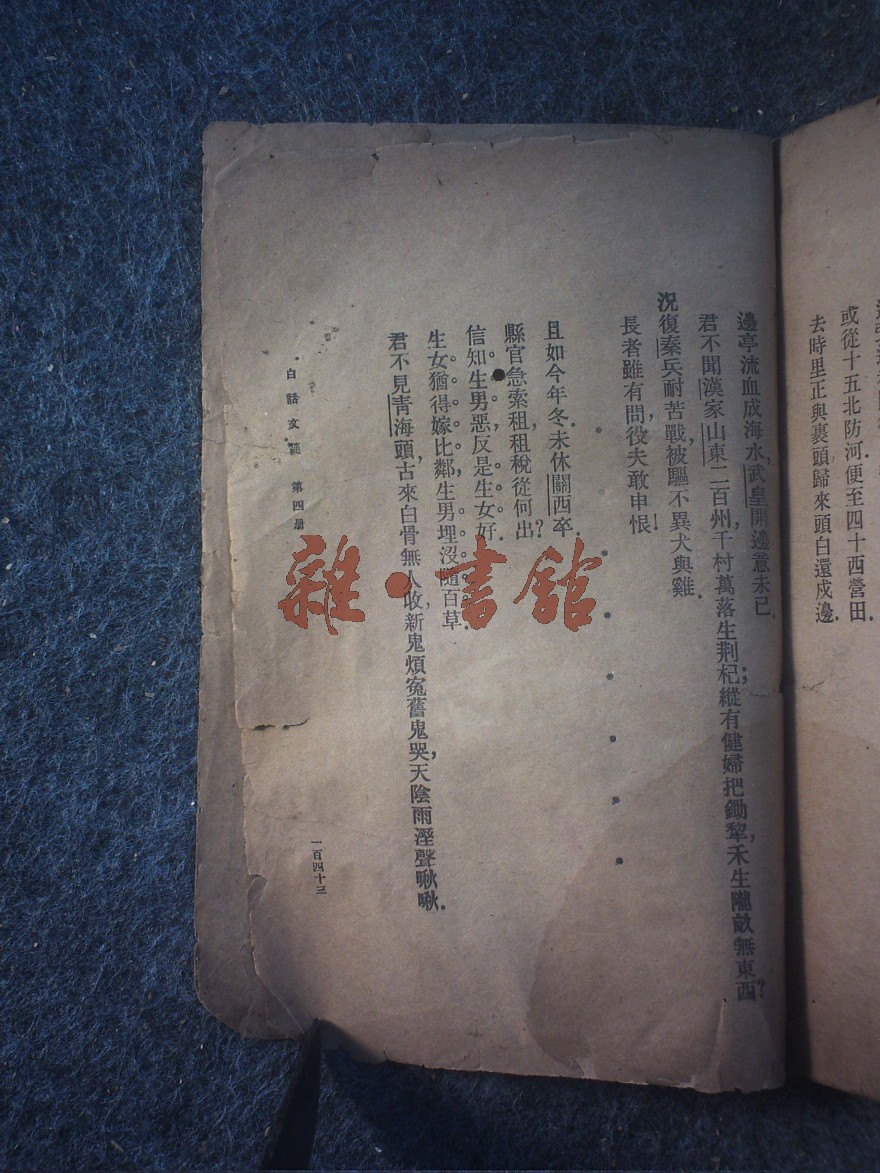 或從十五北防河，便至四十西營田．
去時里正與裹頭，歸來頭白還戍邊．
邊亭流血成海水，武皇開邊意未已．
君不聞漢家山東二百州，千村萬落生荆杞；縱有健婦把鋤犂，禾生隴畝無東西？
況復秦兵耐苦戰，被驅不異犬與雞．
長者雖有問，役夫敢申恨！
且如今年冬，未休關西卒．
縣官急索租，租稅從何出？
信知生男惡，反是生女好．
生女猶得嫁比鄰，生男埋沒隨百草．
君不見青海頭，古來白骨無人收，新鬼煩寃舊鬼哭，天陰雨溼聲啾啾．
白話文範 第四册
一百四十三
雜·書館